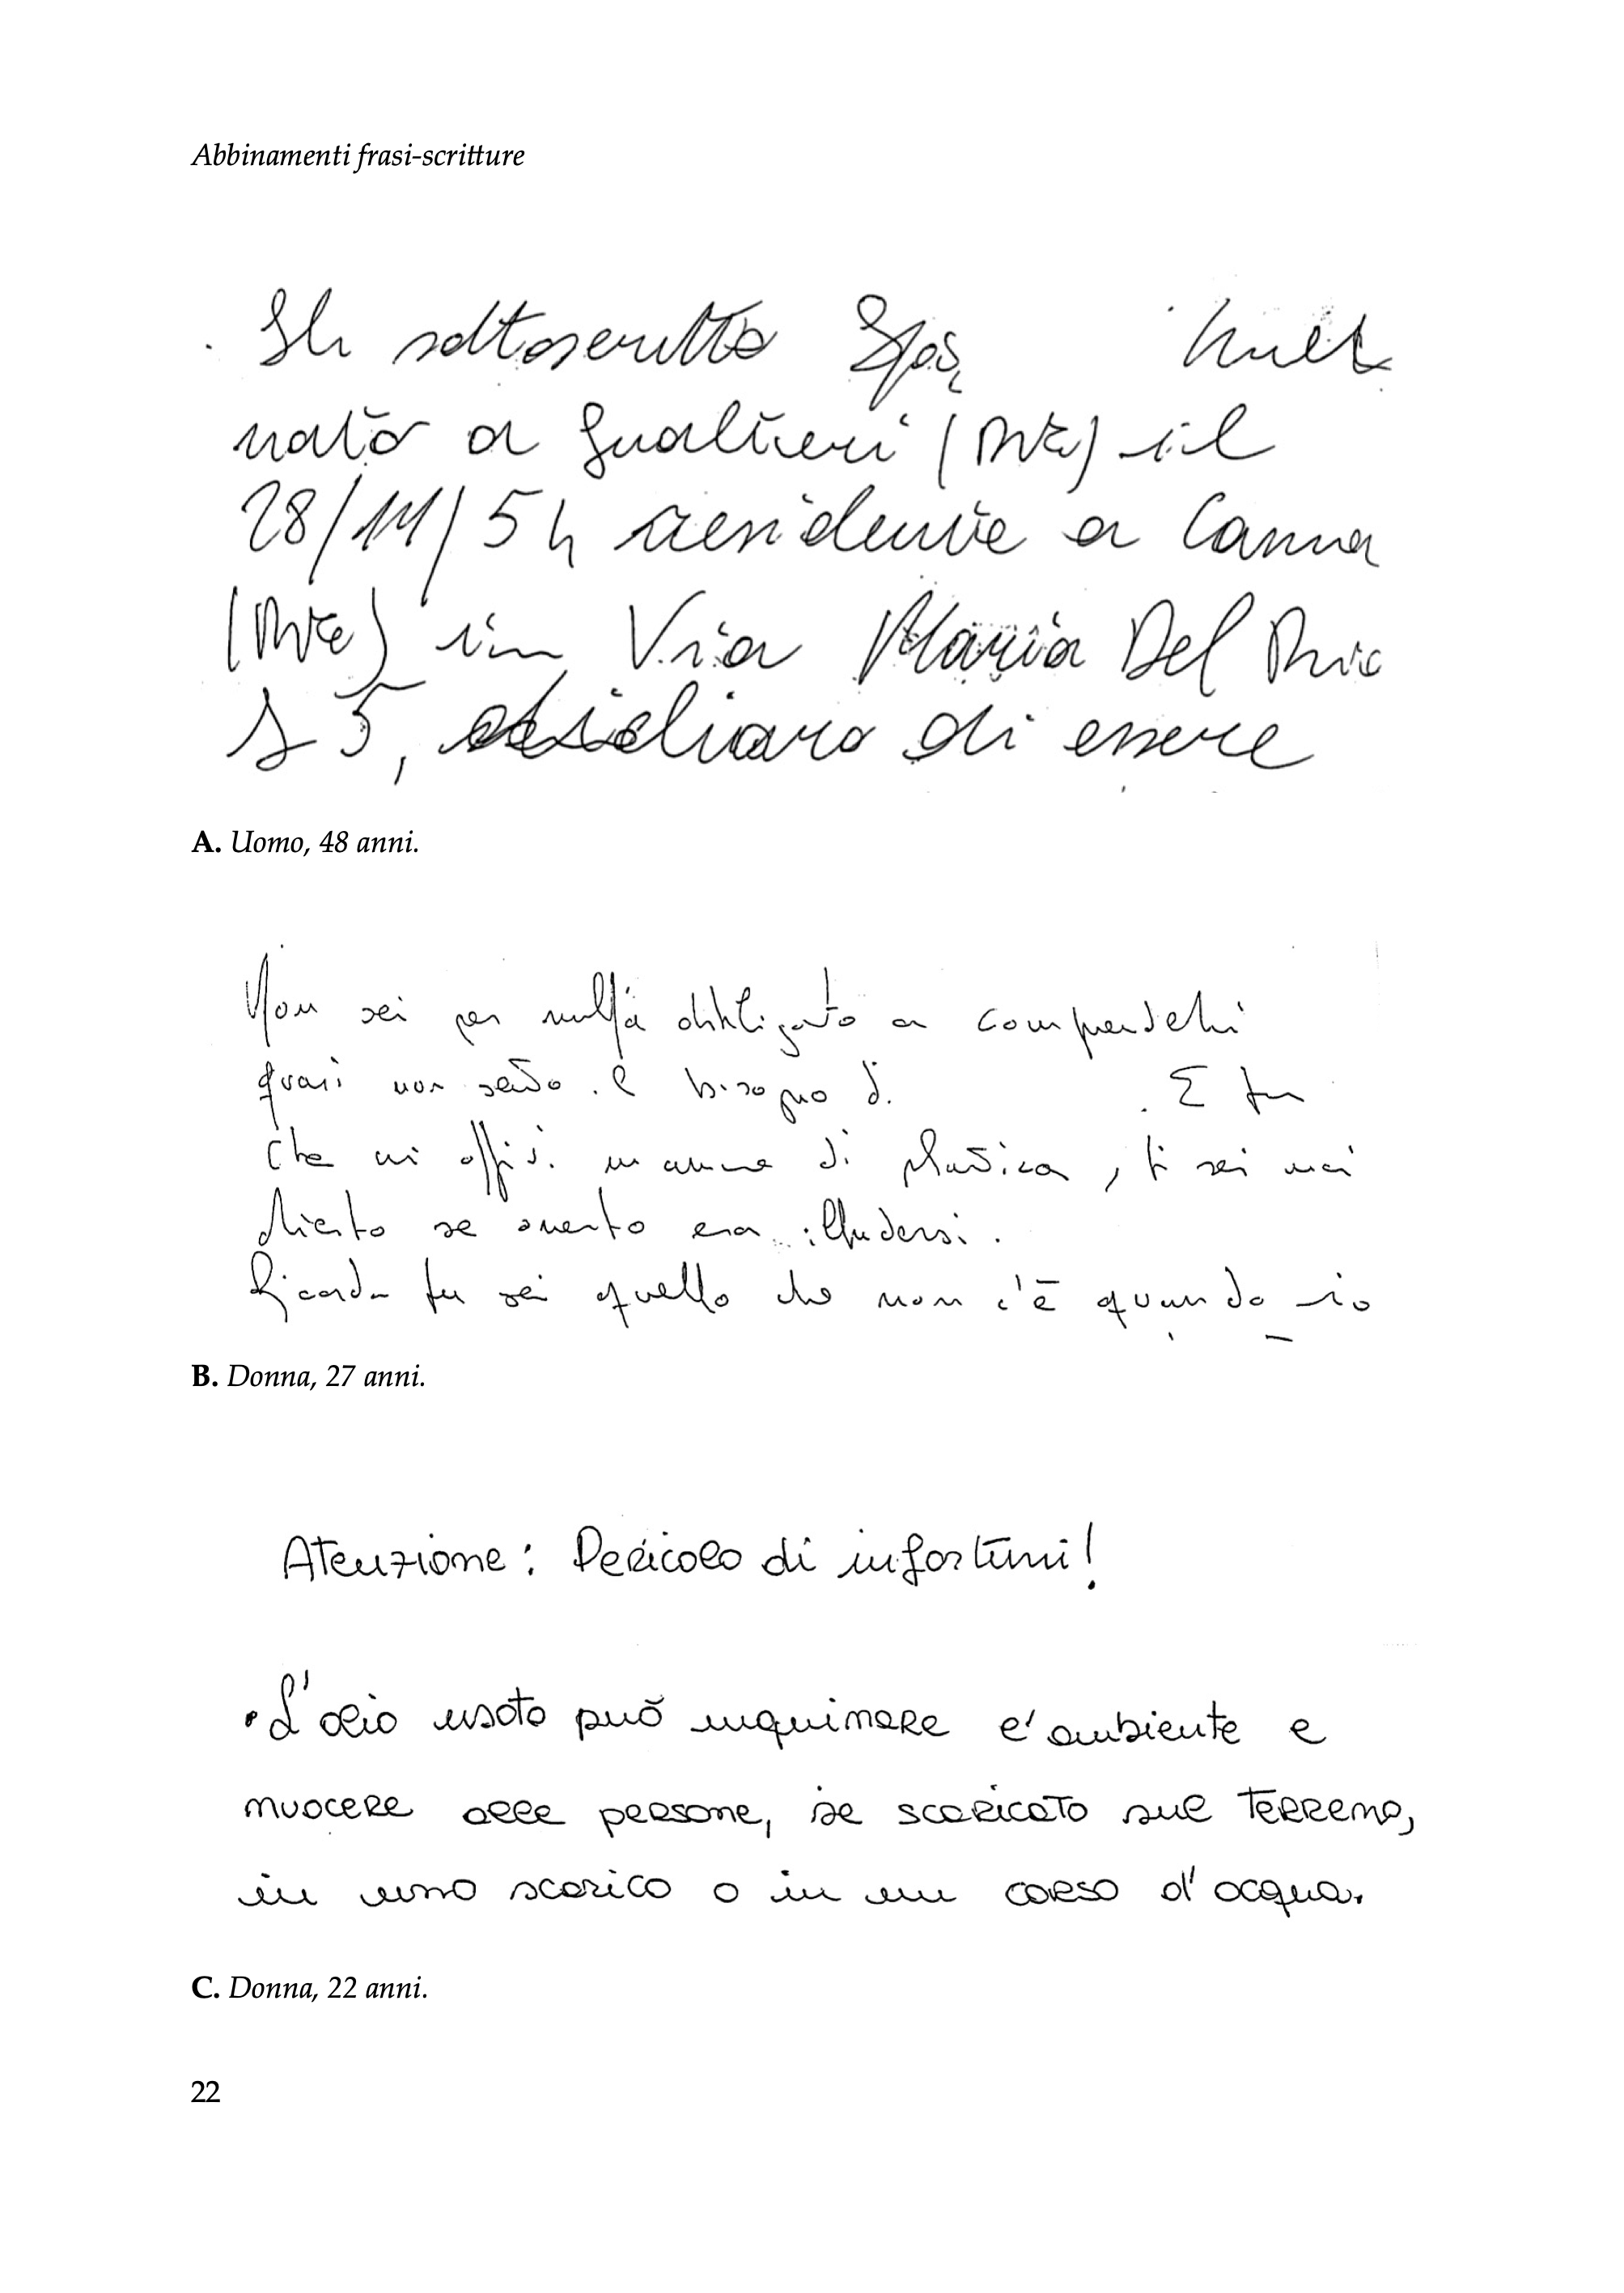 Abbinamenti frasi-scritture
Il sottoscritto
nato a Gualtieri (RE) il
28/11/54 residente a Canna
(RE) in Via Maria Del Ric
5, dichiaro di essere
A. Uomo, 48 anni.
Non sei per nulla obbligato a comprenderli
quasi non sento il bisogno di
. E tu
che mi offri mamme di plastica, ti sei mai
chiesto se questo era illudersi.
Ricorda tu sei quello che non c'è quando io
B. Donna, 27 anni.
Atenzione: Pericolo di infortuni!
• L'olio usato può inquinare l'ambiente e
nuocere alle persone, se scaricato sul terreno,
in uno scarico o in un corso d'acqua.
C. Donna, 22 anni.
22